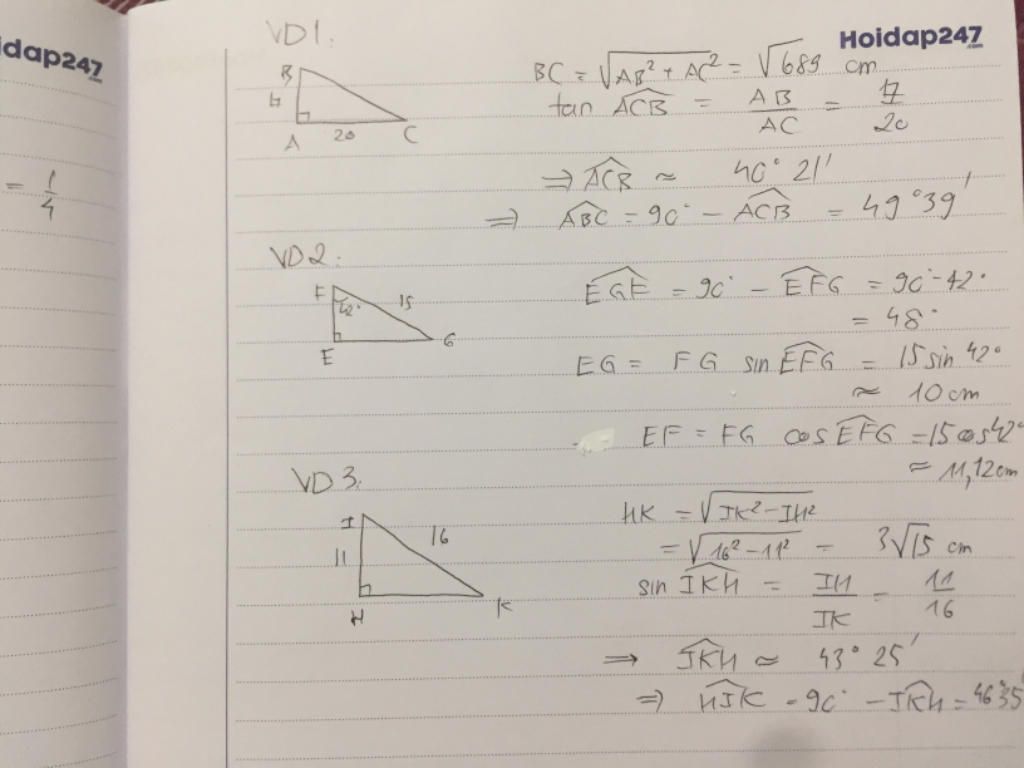 idap247
.com
= 1/4
Hoidap247
.com
VD1:
B
17
A
20
C
BC = √(AB² + AC²) = √689 cm
tan ACB^ = AB/AC = 17/20
⇒ ACB^ ≈ 40° 21'
⇒ ABC^ = 90° - ACB^ = 49° 39'
VD2:
F
42°
15
E
G
EGF^ = 90° - EFG^ = 90° - 42°
= 48°
EG = FG sin EFG^ = 15 sin 42°
≈ 10 cm
EF = FG cos EFG^ = 15 cos 42°
≈ 11,12 cm
VD3:
I
11
16
H
K
HK = √(IK² - IH²)
= √(16² - 11²) = 3√15 cm
sin IKH^ = IH/IK = 11/16
⇒ IKH^ ≈ 43° 25'
⇒ HIK^ = 90° - IKH^ = 46°35'